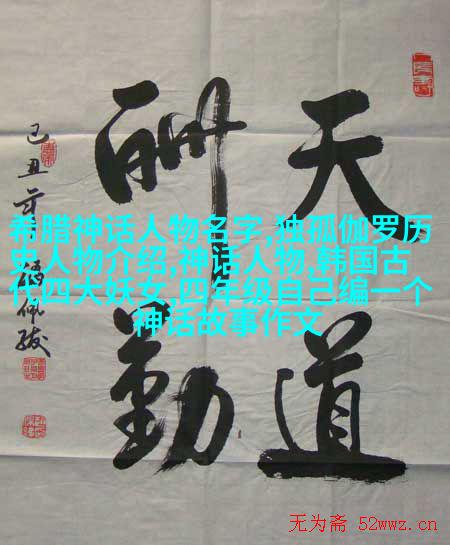 天道
酬勤
己丑
希腊神话人物名字,独孤伽罗历
史人物介绍,神话人物,韩国古
代四大妖女,四年级自己编一个
神话故事作文
无为斋 52wwz.cn